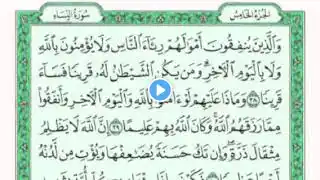 الجزء الخامس
سورة النساء
وَالَّذِينَ يُنفِقُونَ أَمْوَٰلَهُمْ رِئَآءَ ٱلنَّاسِ وَلَا يُؤْمِنُونَ بِٱللَّهِ
وَلَا بِٱلْيَوْمِ ٱلْأَخِرِ وَمَن يَكُنِ ٱلشَّيْطَٰنُ لَهُۥ قَرِينًا فَسَآءَ
قَرِينًا ٣٨ وَمَاذَا عَلَيْهِمْ لَوْ ءَامَنُوا۟ بِٱللَّهِ وَٱلْيَوْمِ ٱلْأَخِرِ وَأَنفَقُوا۟
مِمَّا رَزَقَهُمُ ٱللَّهُ وَكَانَ ٱللَّهُ بِهِمْ عَلِيمًا ٣٩ إِنَّ ٱللَّهَ لَا يَظْلِمُ
مِثْقَالَ ذَرَّةٍ وَإِن تَكُ حَسَنَةً يُضَٰعِفْهَا وَيُؤْتِ مِن لَّدُنْهُ